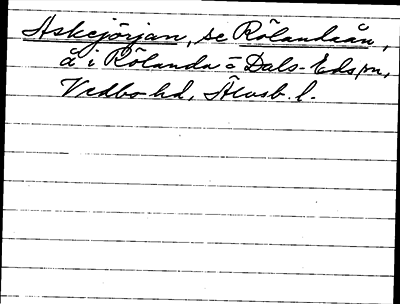 Askejörjan, se Rölandsån,
å i Rölanda o Dals-Eds snr,
Vedbo hd, Älvsb. l.